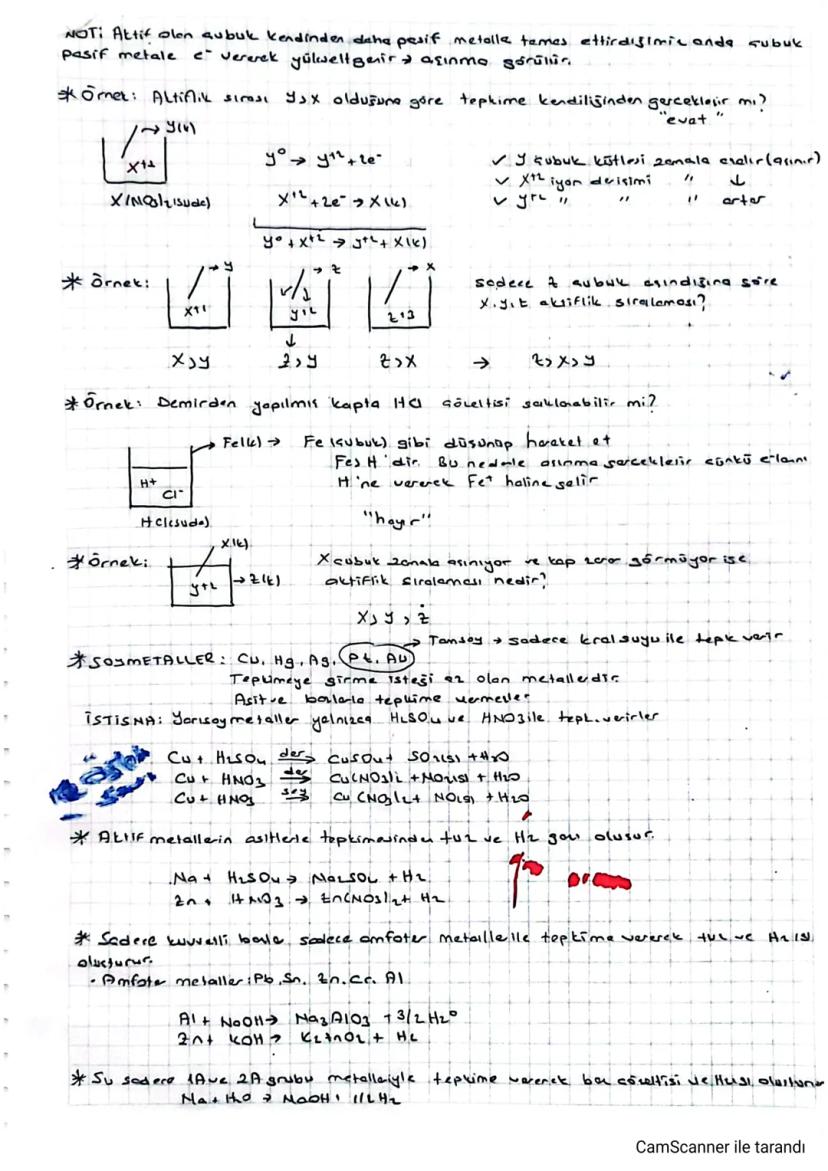 NOT: Aktif olan çubuk kendinden daha pasif metalle temas ettirdiğimiz anda çubuk
pasif metale e⁻ vererek yükseltgenir → aşınma görülür.
* Örnek: Aktiflik sırası y>x olduğuna göre tepkime kendiliğinden gerçekleşir mi?
"evet"
→ y(k)
X⁺²
X(NO₃)₂(suda)
y⁰ → y⁺² + 2e⁻
X⁺² + 2e⁻ → X(k)
y⁰ + X⁺² → y⁺² + X(k)
✓ y çubuk kütlesi zamanla azalır (aşınır)
✓ X⁺² iyon derişimi " ↓
✓ y⁺² " " " artar
* Örnek:
→ y
X⁺¹
→ z
y⁺²
→ x
z⁺³
sadece z çubuk aşındığına göre
x, y, z aktiflik sıralaması?
X>y
z>y
z>X
→ z>X>y
* Örnek: Demirden yapılmış kapta HCl çözeltisi saklanabilir mi?
→ Fe(k) → Fe (çubuk) gibi düşünüp hareket et
Fe>H'dir. Bu nedenle aşınma gerçekleşir çünkü e⁻larını
H'ne vererek Fe⁺ haline gelir
H⁺
Cl⁻
HCl(suda)
"hayır"
* Örnek:
X(k)
y⁺²
→ z(k)
X çubuk zamanla aşınıyor ve kap zarar görmüyor ise
aktiflik sıralaması nedir?
X>y>z
* SOYMETALLER: Cu, Hg, Ag, Pt, Au
→ Tamsoy → sadece kral suyu ile tepk verir
Tepkimeye girme isteği az olan metallerdir
Asit ve bazlarla tepkime vermezler
İSTİSNA: Yarısoy metaller yalnızca H₂SO₄ ve HNO₃ ile tepk. verirler
Cu + H₂SO₄ der→ CuSO₄ + SO₂(g) + H₂O
Cu + HNO₃ der→ Cu(NO₃)₂ + NO₂(g) + H₂O
Cu + HNO₃ sey→ Cu(NO₃)₂ + NO(g) + H₂O
* Aktif metallerin asitlerle tepkimesinden tuz ve H₂ gazı oluşur.
Na + H₂SO₄ → Na₂SO₄ + H₂
Zn + HNO₃ → Zn(NO₃)₂ + H₂
* Sadece kuvvetli bazla sadece amfoter metaller ile tepkime vererek tuz ve H₂(g)
oluşturur.
• Amfoter metaller: Pb, Sn, Zn, Cr, Al
Al + NaOH → Na₃AlO₃ + 3/2 H₂⁰
Zn + KOH → K₂ZnO₂ + H₂
* Su sadece 1A ve 2A grubu metalleriyle tepkime vererek baz çözeltisi ve H₂(g) oluşturur
Na + H₂O → NaOH + 1/2 H₂
CamScanner ile tarandı